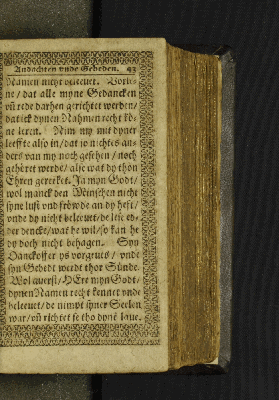 Andachten vnde Gebeden. 43
Namen nicht beleuet. Vorle-
ne / dat alle myne Gedancken
vñ rede darhen gerichtet werden /
dat ick dynen Nahmen recht kö-
ne leren. Nim my mit dyner
leeffte also in / dat jo nichtes an-
ders van my noch gesehen / noch
gehöret werde / alse wat dy thon
Ehren gereket. Ja myn Godt /
wol manck den Minschen nicht
syne lust vnd fröwde an dy hefft /
vnde dy nicht beleuet / de leie ed-
der dencke / wat he wil / so kan he
dy doch nicht behagen. Syn
Danckoffer ys vorgeues / vnde
syn Gebedt werdt thor Sünde.
Wol auerst / HEre myn Godt /
dynen Namen recht kennet vnde
beleuet / de nimpt syner Seelen
war / vñ richtet se tho dynē laue.